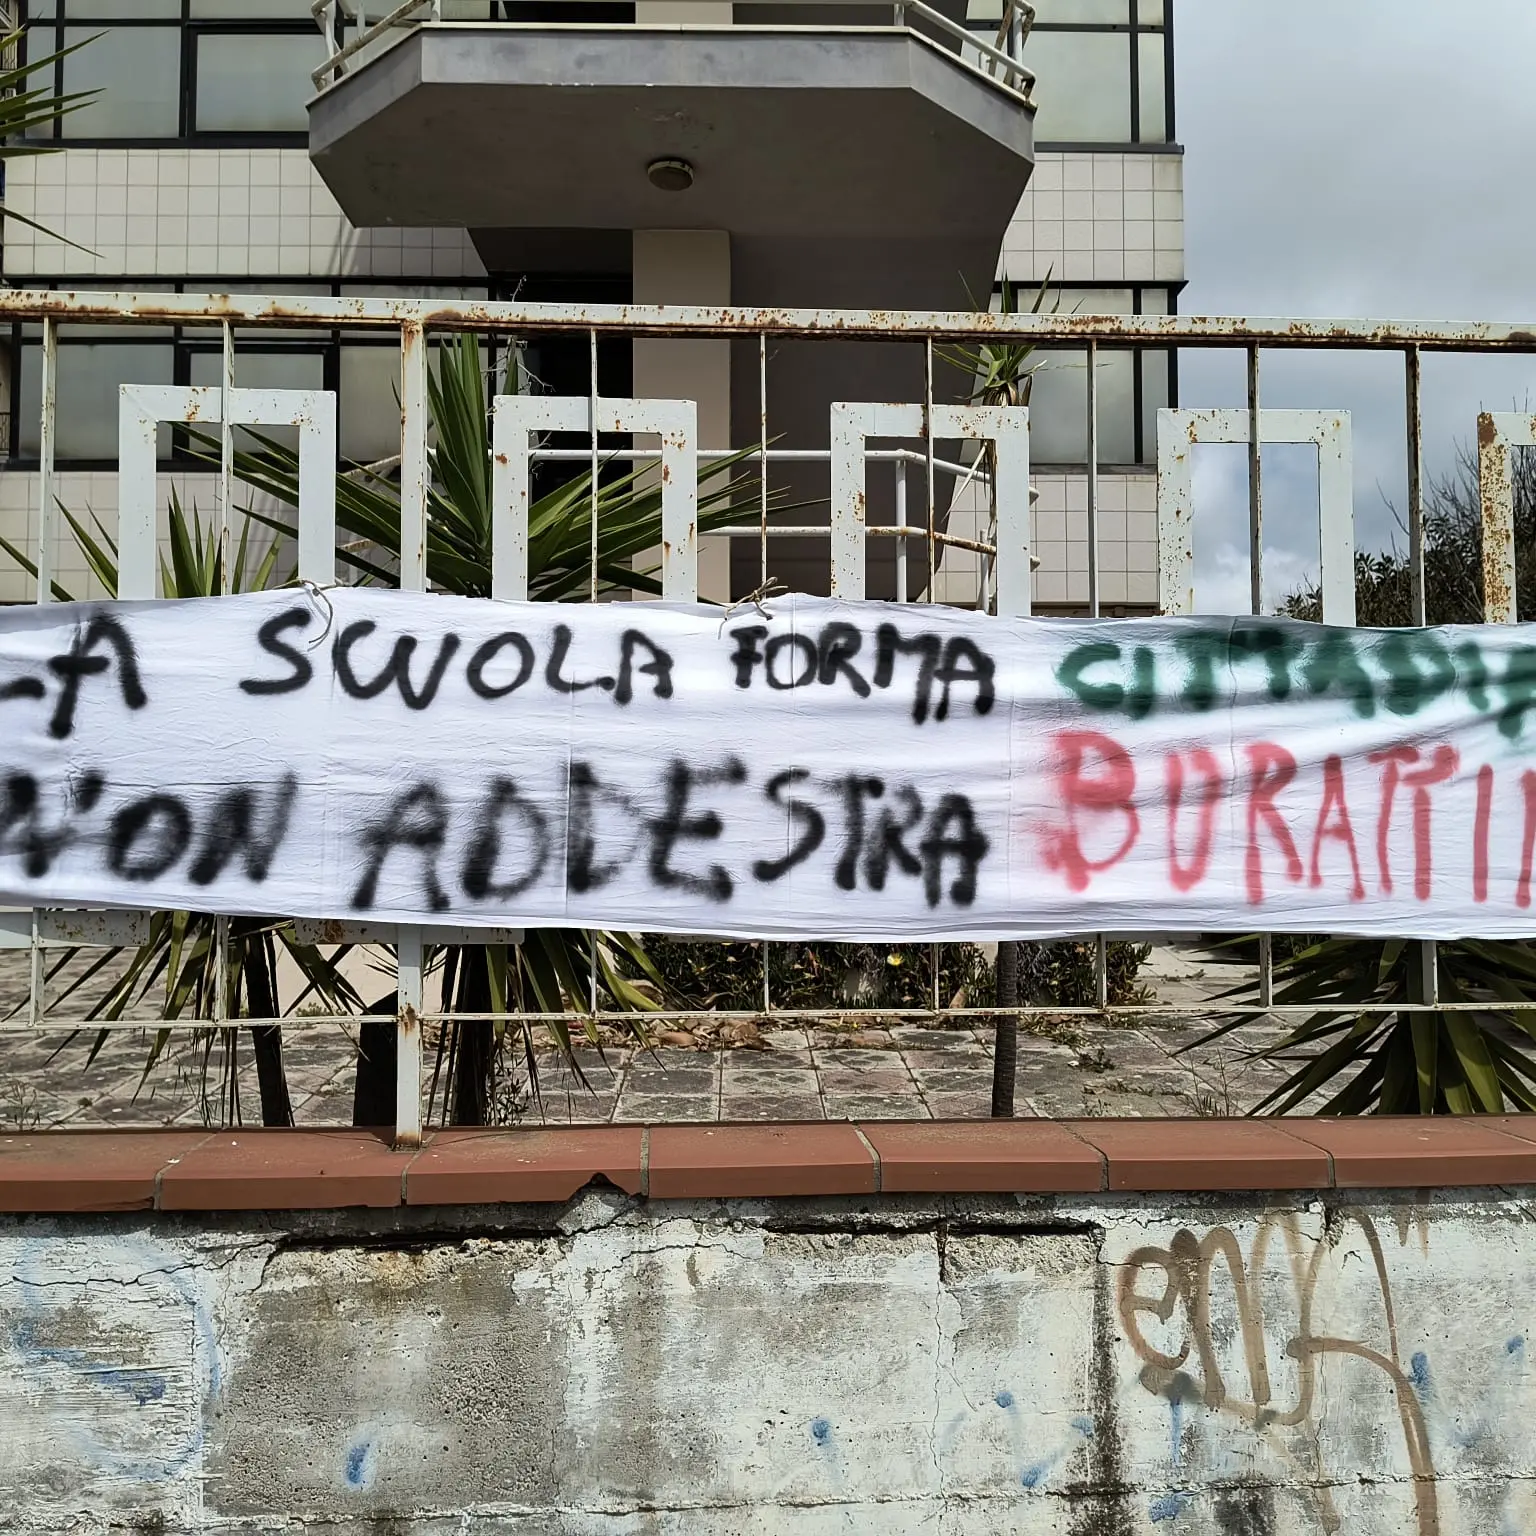 LA SCUOLA FORMA CITTADIA
NON ADDESTRA BURATTIN